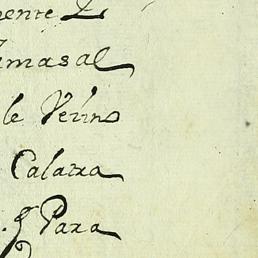 nente L
imas al
le Vezino
Calatra
. y Para